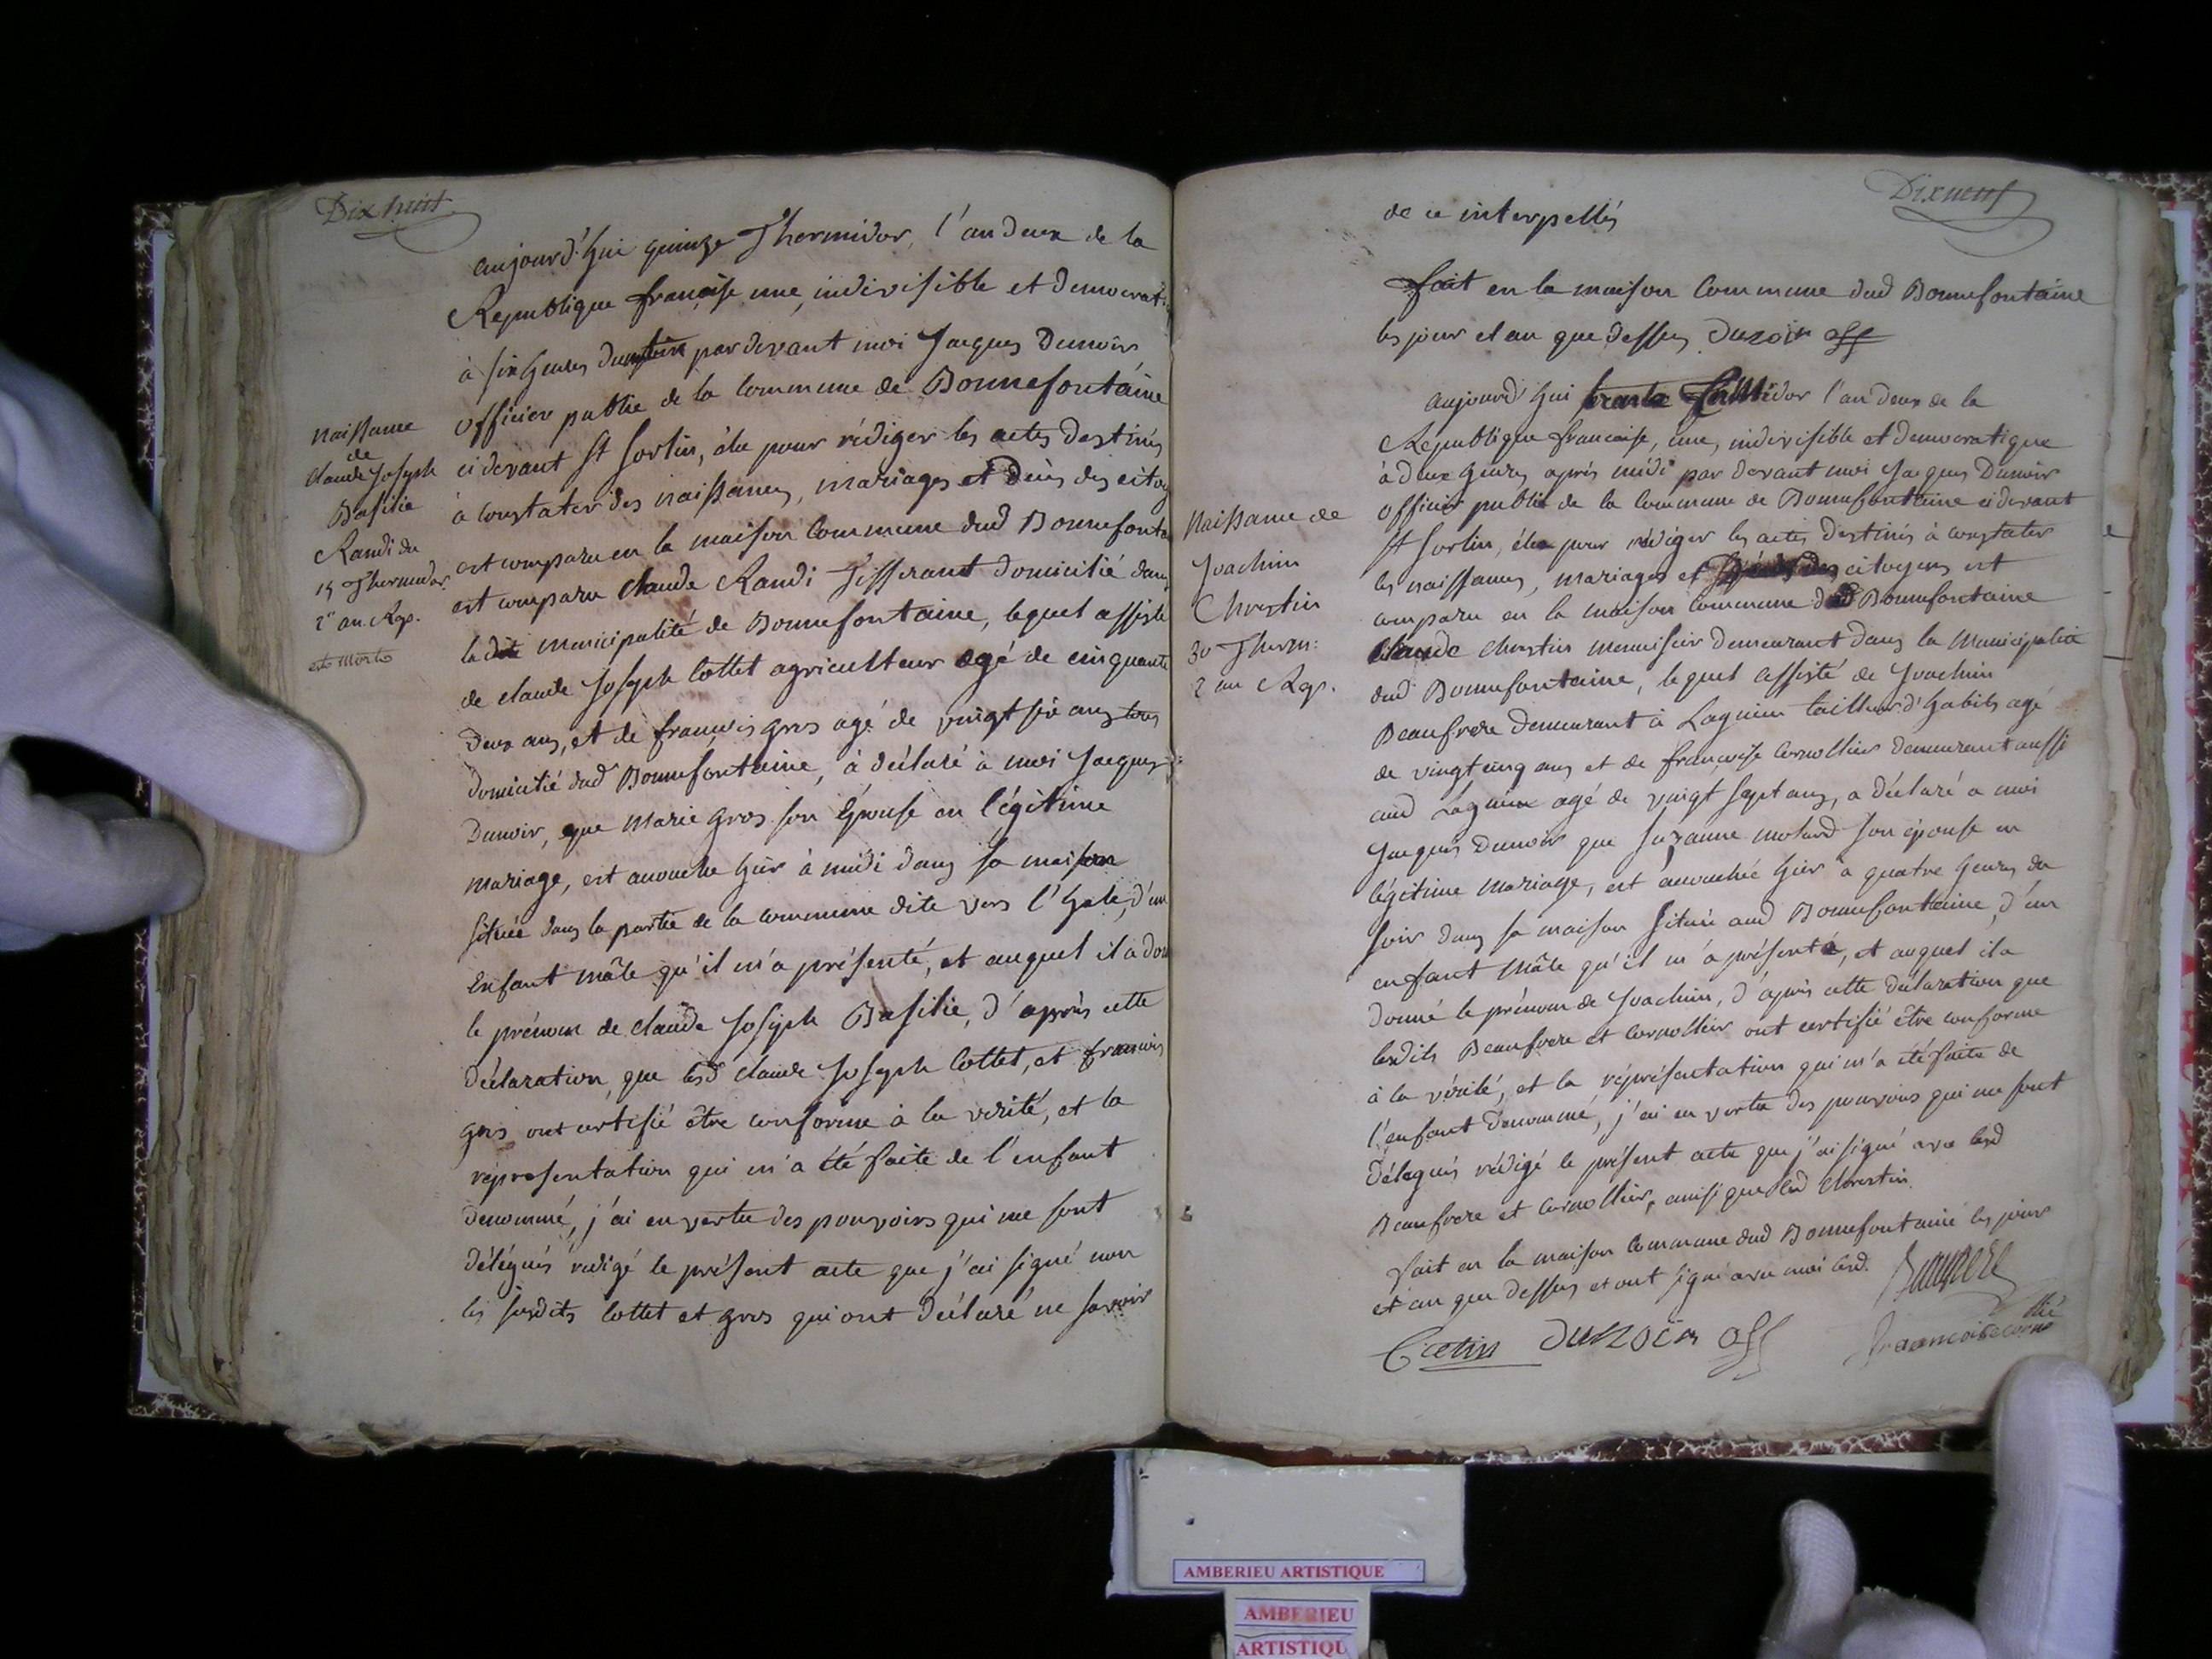 Dix huit
aujourd'hui quinze Thermidor, l'an deux de la
Republique françoise une, indivisible et democrati
à six heures du par devant moi Jacques Dunoir
officier public de la commune de Bonnefontaine
ci devant St Sorlin, élu pour rédiger les actes destinés
à constater des naissances, mariages et décès des citoy
est comparu en la maison commune dud Bonnefonta
est comparu claude Randi Tisserant domicilié dans
ladite municipalité de Bonnefontaine, lequel assisté
de claude Joseph Cottet agriculteur agé de cinquante
deux ans, et de francois gros agé de vingt six ans tous
domicilié dud Bonnefontaine, à déclaré à moi Jacques
Dunoir, que Marie gros son Epouse en légitime
mariage, est accouchée hier à midi dans sa maison
située dans la partie de la commune dite vers l'hale, d'un
Enfant mâle qu'il m'a présenté, et auquel il a don
le prénom de claude Joseph Basilie, d'après cette
déclaration que lesd claude Joseph Cottet, et francois
gros ont certifié être conforme à la verité, et la
représentation qui m'a été faite de l'enfant
denommé, j'ai en vertu des pouvoirs qui me sont
délégués rédigé le présent acte que j'ai signé non
les susdits Cottet et gros qui ont déclaré ne savoir
naissance
de
claude Joseph
Basilie
Randi du
15 Thermidor
2e an. Rep.
est morte
Dixneuf
de ce interpellés
fait en la maison Commune dud Bonnefontaine
les jour et an que dessus Dunoir off
aujourd'hui trente Thermidor l'an deux de la
République francaise, une, indivisible et democratique
à deux heures après midi par devant moi Jacques Dunoir
officier public de la commune de Bonnefontaine ci devant
St Sorlin, élu pour rédiger les actes destinés à constater
les naissances, mariages et décès des citoyens est
comparu en la maison commune dud Bonnefontaine
Claude Chrestin menuisier demeurant dans la Municipalité
dud Bonnefontaine, lequel assisté de Joachim
Beaufrere demeurant à Lagnieu tailleur d'habits agé
de vingt cinq ans et de françoise Cornollier demeurant aussi
aud Lagnieu agé de vingt sept ans, a déclaré a moi
Jacques Dunoir que Suzanne molard son épouse en
légitime Mariage, est accouchée hier à quatre heures du
soir dans sa maison située aud Bonnefontaine, d'un
enfant Mâle qu'il m'a présenté, et auquel il a
donné le prénom de Joachim, d'après cette déclaration que
lesdits Beaufrere et Cornollier ont certifié être conforme
à la vérité, et la représentation qui m'a été faite de
l'enfant denommé, j'ai en vertu des pouvoirs qui me sont
délégués rédigé le présent acte que j'ai signé avec lesd
Beaufrere et Cornollier, ainsi que led Chrestin.
fait en la maison Commune dud Bonnefontaine les jour
et an que dessus et ont signé avec moi lesd.
Dunoir off
francoise corno
llié
Naissance de
Joachim
Chrestin
30 Therm:
2 an Rep.
AMBERIEU ARTISTIQUE
AMBERIEU
ARTISTIQU